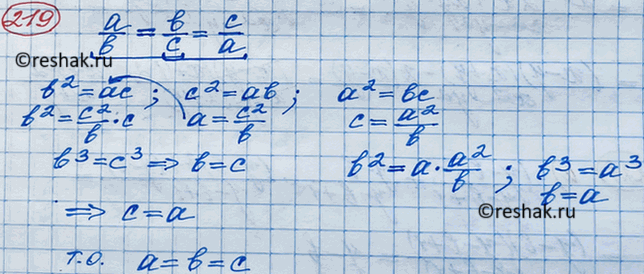 219 a/b = b/c = c/a
©reshak.ru
b² = ac ; c² = ab ; a² = bc
b² = c²/b · c a = c²/b c = a²/b
b³ = c³ ⟹ b = c b² = a · a²/b ; b³ = a³
b = a
⟹ c = a
©reshak.ru
т.о. a = b = c